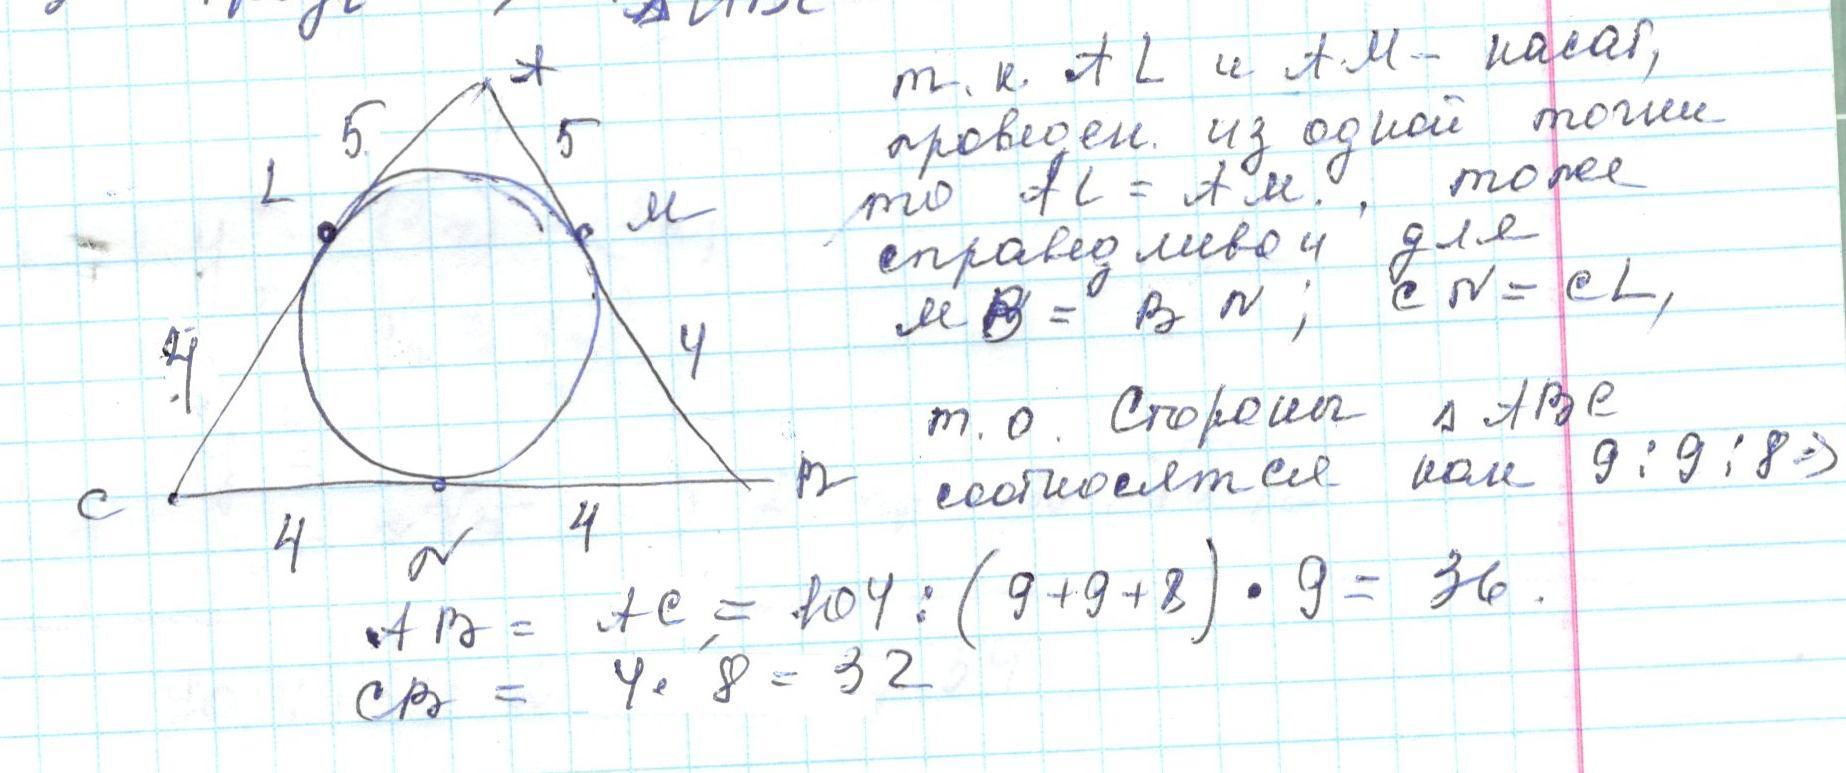 △ABC
A
5
5
L
M
т.к. AL и AM - касат,
проведен. из одной точки
то AL = AM., тоже
справедливо и для
MB = BN; CN = CL,
4
4
т.о. Стороны △ ABC
соотносятся как 9:9:8 ⇒
C
B
4
4
N
AB = AC = 104:(9+9+8)·9 = 36.
CB = 4·8 = 32